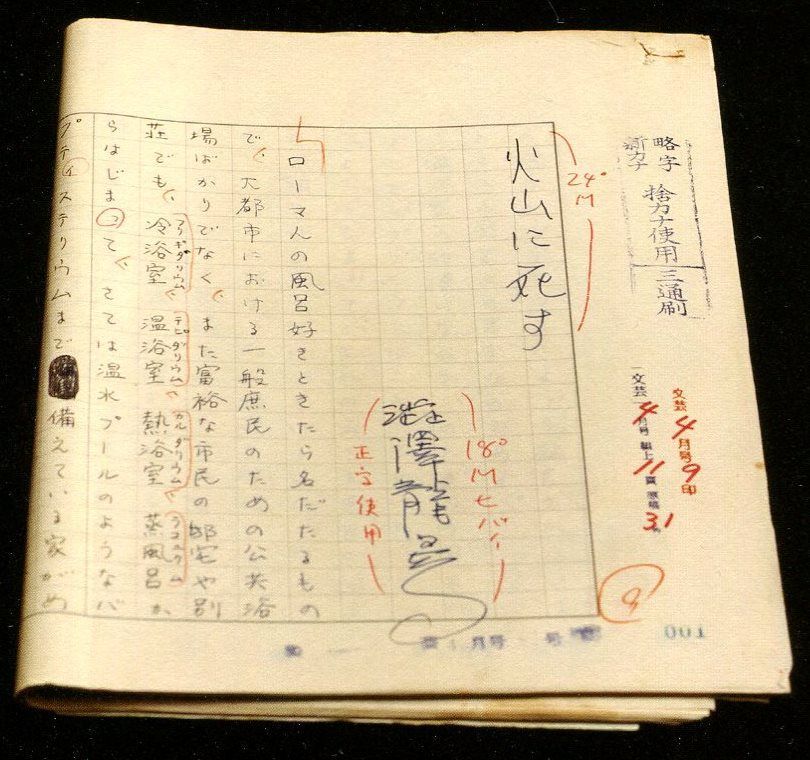 略字
新カナ
捨カナ使用
三通刷
文芸 4月号 9印
文芸 4月号 組上 11頁 原稿 31
24°
火山に死す
18°
澁澤龍彥
正字使用
ローマ人の風呂好きときたら名だたるもの
で、大都市における一般庶民のための公共浴
場ばかりでなく、また富裕な市民の邸宅や別
フリギダリウム テピダリウム カルダリウム ラコニクム
荘でも、冷浴室、温浴室、熱浴室、蒸風呂か
らはじまって、さては温水プールのようなバ
プティステリウムまで備えている家がめ
9
001
月号
号